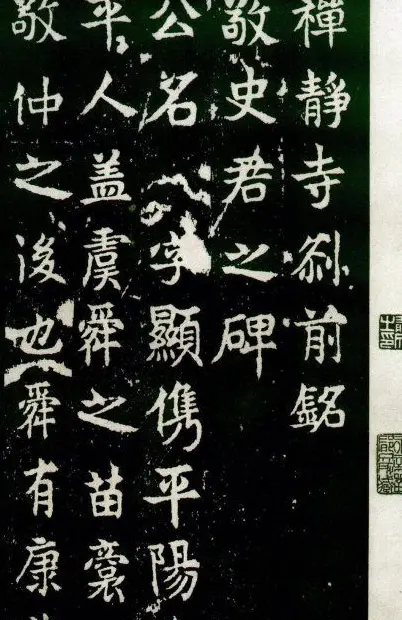 禪静寺刹前銘
敬史君之碑
公名字顯儁平陽
平人盖虞舜之苗裔
敬仲之後也舜有康